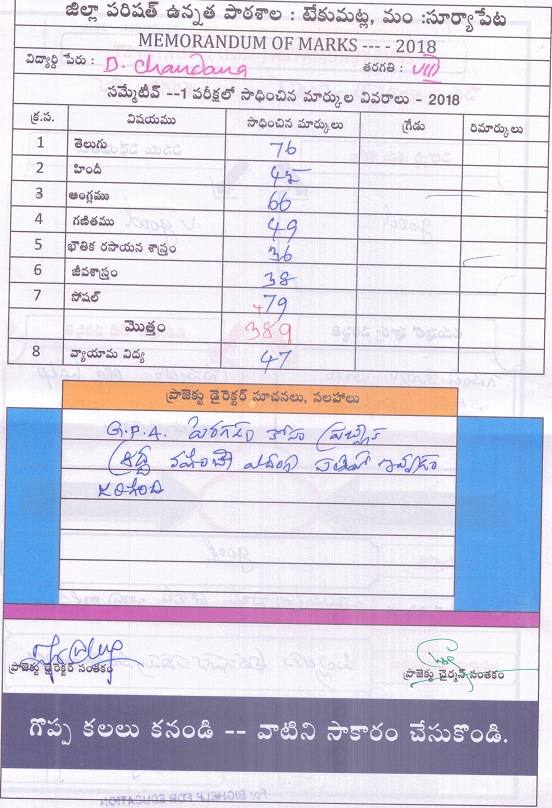 జిల్లా పరిషత్ ఉన్నత పాఠశాల : టేకుమట్ల, మం :సూర్యాపేట
MEMORANDUM OF MARKS ---- - 2018
విద్యార్థి పేరు : D. Chandana తరగతి : VIII
సమ్మేటీవ్ --1 పరీక్షలో సాధించిన మార్కుల వివరాలు - 2018
క్ర.స. విషయము సాధించిన మార్కులు గ్రేడు రిమార్కులు
1 తెలుగు 76
2 హిందీ 45
3 ఆంగ్లము 66
4 గణితము 49
5 భౌతిక రసాయన శాస్త్రం 36
6 జీవశాస్త్రం 38
7 సోషల్ 79
మొత్తం 389
8 వ్యాయామ విద్య 47
ప్రాజెక్టు డైరెక్టర్ సూచనలు, సలహాలు
G.P.A. పెరగడం కోసం
జరిగింది
ప్రాజెక్టు డైరెక్టర్ సంతకం ప్రాజెక్టు చైర్మన్ సంతకం
గొప్ప కలలు కనండి -- వాటిని సాకారం చేసుకొండి.
For BIGHELP FOR EDUCATION